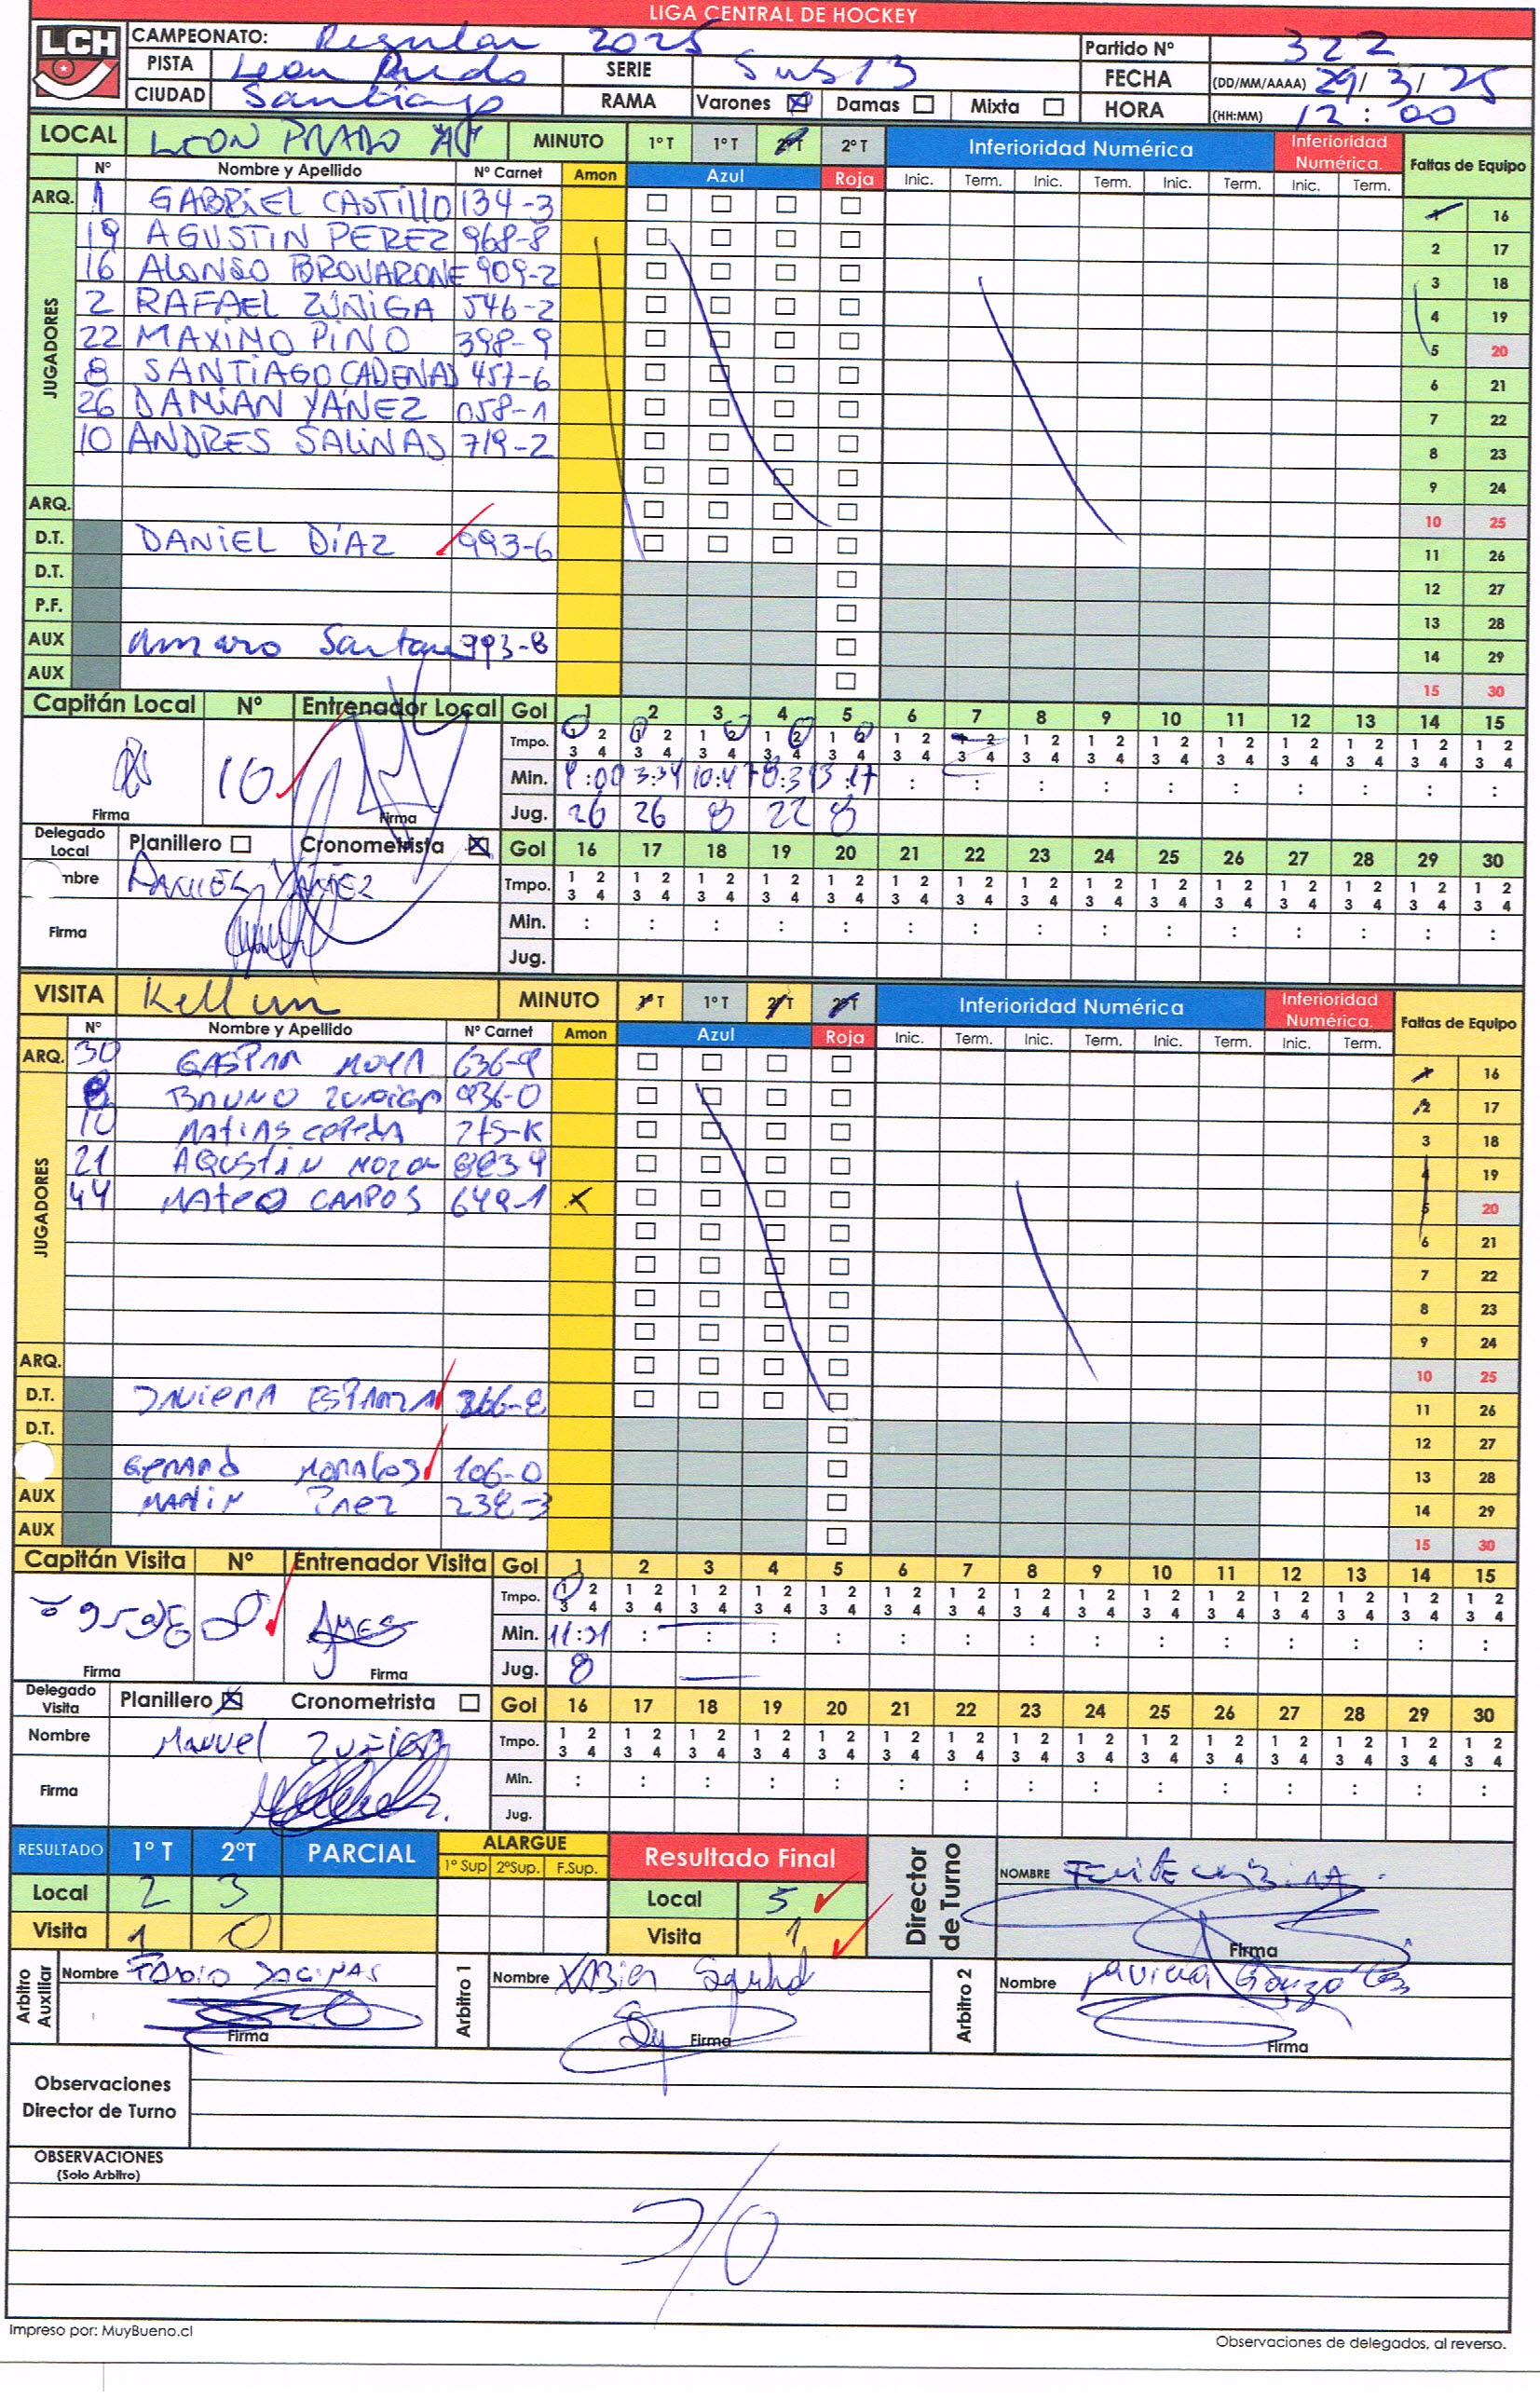 LIGA CENTRAL DE HOCKEY
LCH
CAMPEONATO: Regular 2025 Partido Nº 322
PISTA Leon Prado SERIE Sub13 FECHA (DD/MM/AAAA) 29/3/25
CIUDAD Santiago RAMA Varones Damas Mixta HORA (HH:MM) 12:00
LOCAL LEON PRADO MINUTO 1º T 1º T 2º T 2º T Inferioridad Numérica Inferioridad Numérica. Faltas de Equipo
Nº Nombre y Apellido Nº Carnet Amon Azul Roja Inic. Term. Inic. Term. Inic. Term. Inic. Term.
ARQ. 1 GABRIEL CASTILLO 134-3 1 16
JUGADORES
19 AGUSTIN PEREZ 968-8 2 17
16 ALONSO BROVARONE 909-2 3 18
2 RAFAEL ZÚÑIGA 546-2 4 19
22 MAXIMO PINO 398-9 5 20
8 SANTIAGO CADENAS 457-6 6 21
26 DAMIAN YÁÑEZ 058-1 7 22
10 ANDRES SALINAS 719-2 8 23
9 24
ARQ. 10 25
D.T. DANIEL DÍAZ 993-6 11 26
D.T. 12 27
P.F. 13 28
AUX Amaro 993-8 14 29
AUX 15 30
Capitán Local Nº Entrenador Local Gol 1 2 3 4 5 6 7 8 9 10 11 12 13 14 15
Tmpo. 1 2 1 2 1 2 1 2 1 2 1 2 1 2 1 2 1 2 1 2 1 2 1 2 1 2 1 2 1 2
3 4 3 4 3 4 3 4 3 4 3 4 3 4 3 4 3 4 3 4 3 4 3 4 3 4 3 4 3 4
10 Min. 3:34 10:47 : : : : : : : : : :
Firma Firma Jug. 26 26 8 22 8
Delegado Local Planillero Cronometrista Gol 16 17 18 19 20 21 22 23 24 25 26 27 28 29 30
YAÑEZ Tmpo. 1 2 1 2 1 2 1 2 1 2 1 2 1 2 1 2 1 2 1 2 1 2 1 2 1 2 1 2 1 2
3 4 3 4 3 4 3 4 3 4 3 4 3 4 3 4 3 4 3 4 3 4 3 4 3 4 3 4 3 4
Firma Min. : : : : : : : : : : : : : : :
Jug.
VISITA Kellun MINUTO 1º T 1º T 2º T 2º T Inferioridad Numérica Inferioridad Numérica. Faltas de Equipo
Nº Nombre y Apellido Nº Carnet Amon Azul Roja Inic. Term. Inic. Term. Inic. Term. Inic. Term.
ARQ. 30 GASPAR MOYA 636-9 1 16
JUGADORES
8 BRUNO ZUÑIGA 936-0 2 17
10 MATIAS 275-K 3 18
21 AGUSTIN 4 19
44 MATEO CAMPOS 649-1 X 5 20
6 21
7 22
8 23
9 24
ARQ. 10 25
D.T. JAVIERA 11 26
D.T. 12 27
MORALES 106-0 13 28
AUX MARTIN 14 29
AUX 15 30
Capitán Visita Nº Entrenador Visita Gol 1 2 3 4 5 6 7 8 9 10 11 12 13 14 15
Tmpo. 1 2 1 2 1 2 1 2 1 2 1 2 1 2 1 2 1 2 1 2 1 2 1 2 1 2 1 2 1 2
3 4 3 4 3 4 3 4 3 4 3 4 3 4 3 4 3 4 3 4 3 4 3 4 3 4 3 4 3 4
8 Min. : : : : : : : : : : : : : :
Firma Firma Jug. 8
Delegado Visita Planillero Cronometrista Gol 16 17 18 19 20 21 22 23 24 25 26 27 28 29 30
Nombre Manuel Zuñiga Tmpo. 1 2 1 2 1 2 1 2 1 2 1 2 1 2 1 2 1 2 1 2 1 2 1 2 1 2 1 2 1 2
3 4 3 4 3 4 3 4 3 4 3 4 3 4 3 4 3 4 3 4 3 4 3 4 3 4 3 4 3 4
Firma Min. : : : : : : : : : : : : : : :
Jug.
RESULTADO 1º T 2ºT PARCIAL ALARGUE Resultado Final Director de Turno NOMBRE
1º Sup 2ºSup. F.Sup.
Local 2 3 Local 5
Visita 1 0 Visita 1 Firma
Arbitro Auxiliar Nombre Arbitro 1 Nombre Arbitro 2 Nombre
Firma Firma Firma
Observaciones
Director de Turno
OBSERVACIONES
(Solo Arbitro)
Impreso por: MuyBueno.cl
Observaciones de delegados, al reverso.